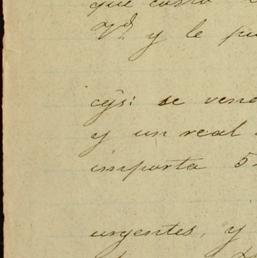 que costó
Vd. y le pu
cys: se vene
y un real
importa 5
urgentes, y